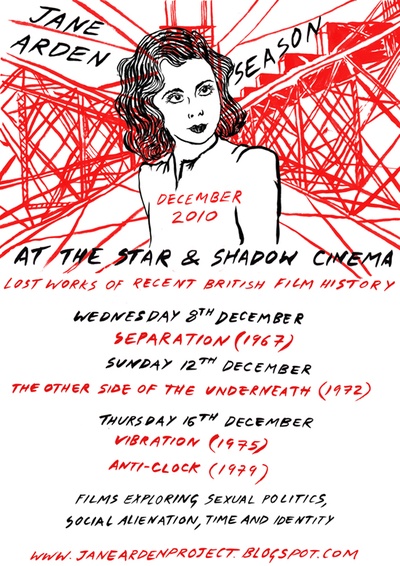 JANE
ARDEN
SEASON
DECEMBER
2010
AT THE STAR & SHADOW CINEMA
LOST WORKS OF RECENT BRITISH FILM HISTORY
WEDNESDAY 8TH DECEMBER
SEPARATION (1967)
SUNDAY 12TH DECEMBER
THE OTHER SIDE OF THE UNDERNEATH (1972)
THURSDAY 16TH DECEMBER
VIBRATION (1975)
ANTI-CLOCK (1979)
FILMS EXPLORING SEXUAL POLITICS,
SOCIAL ALIENATION, TIME AND IDENTITY
WWW.JANEARDENPROJECT.BLOGSPOT.COM